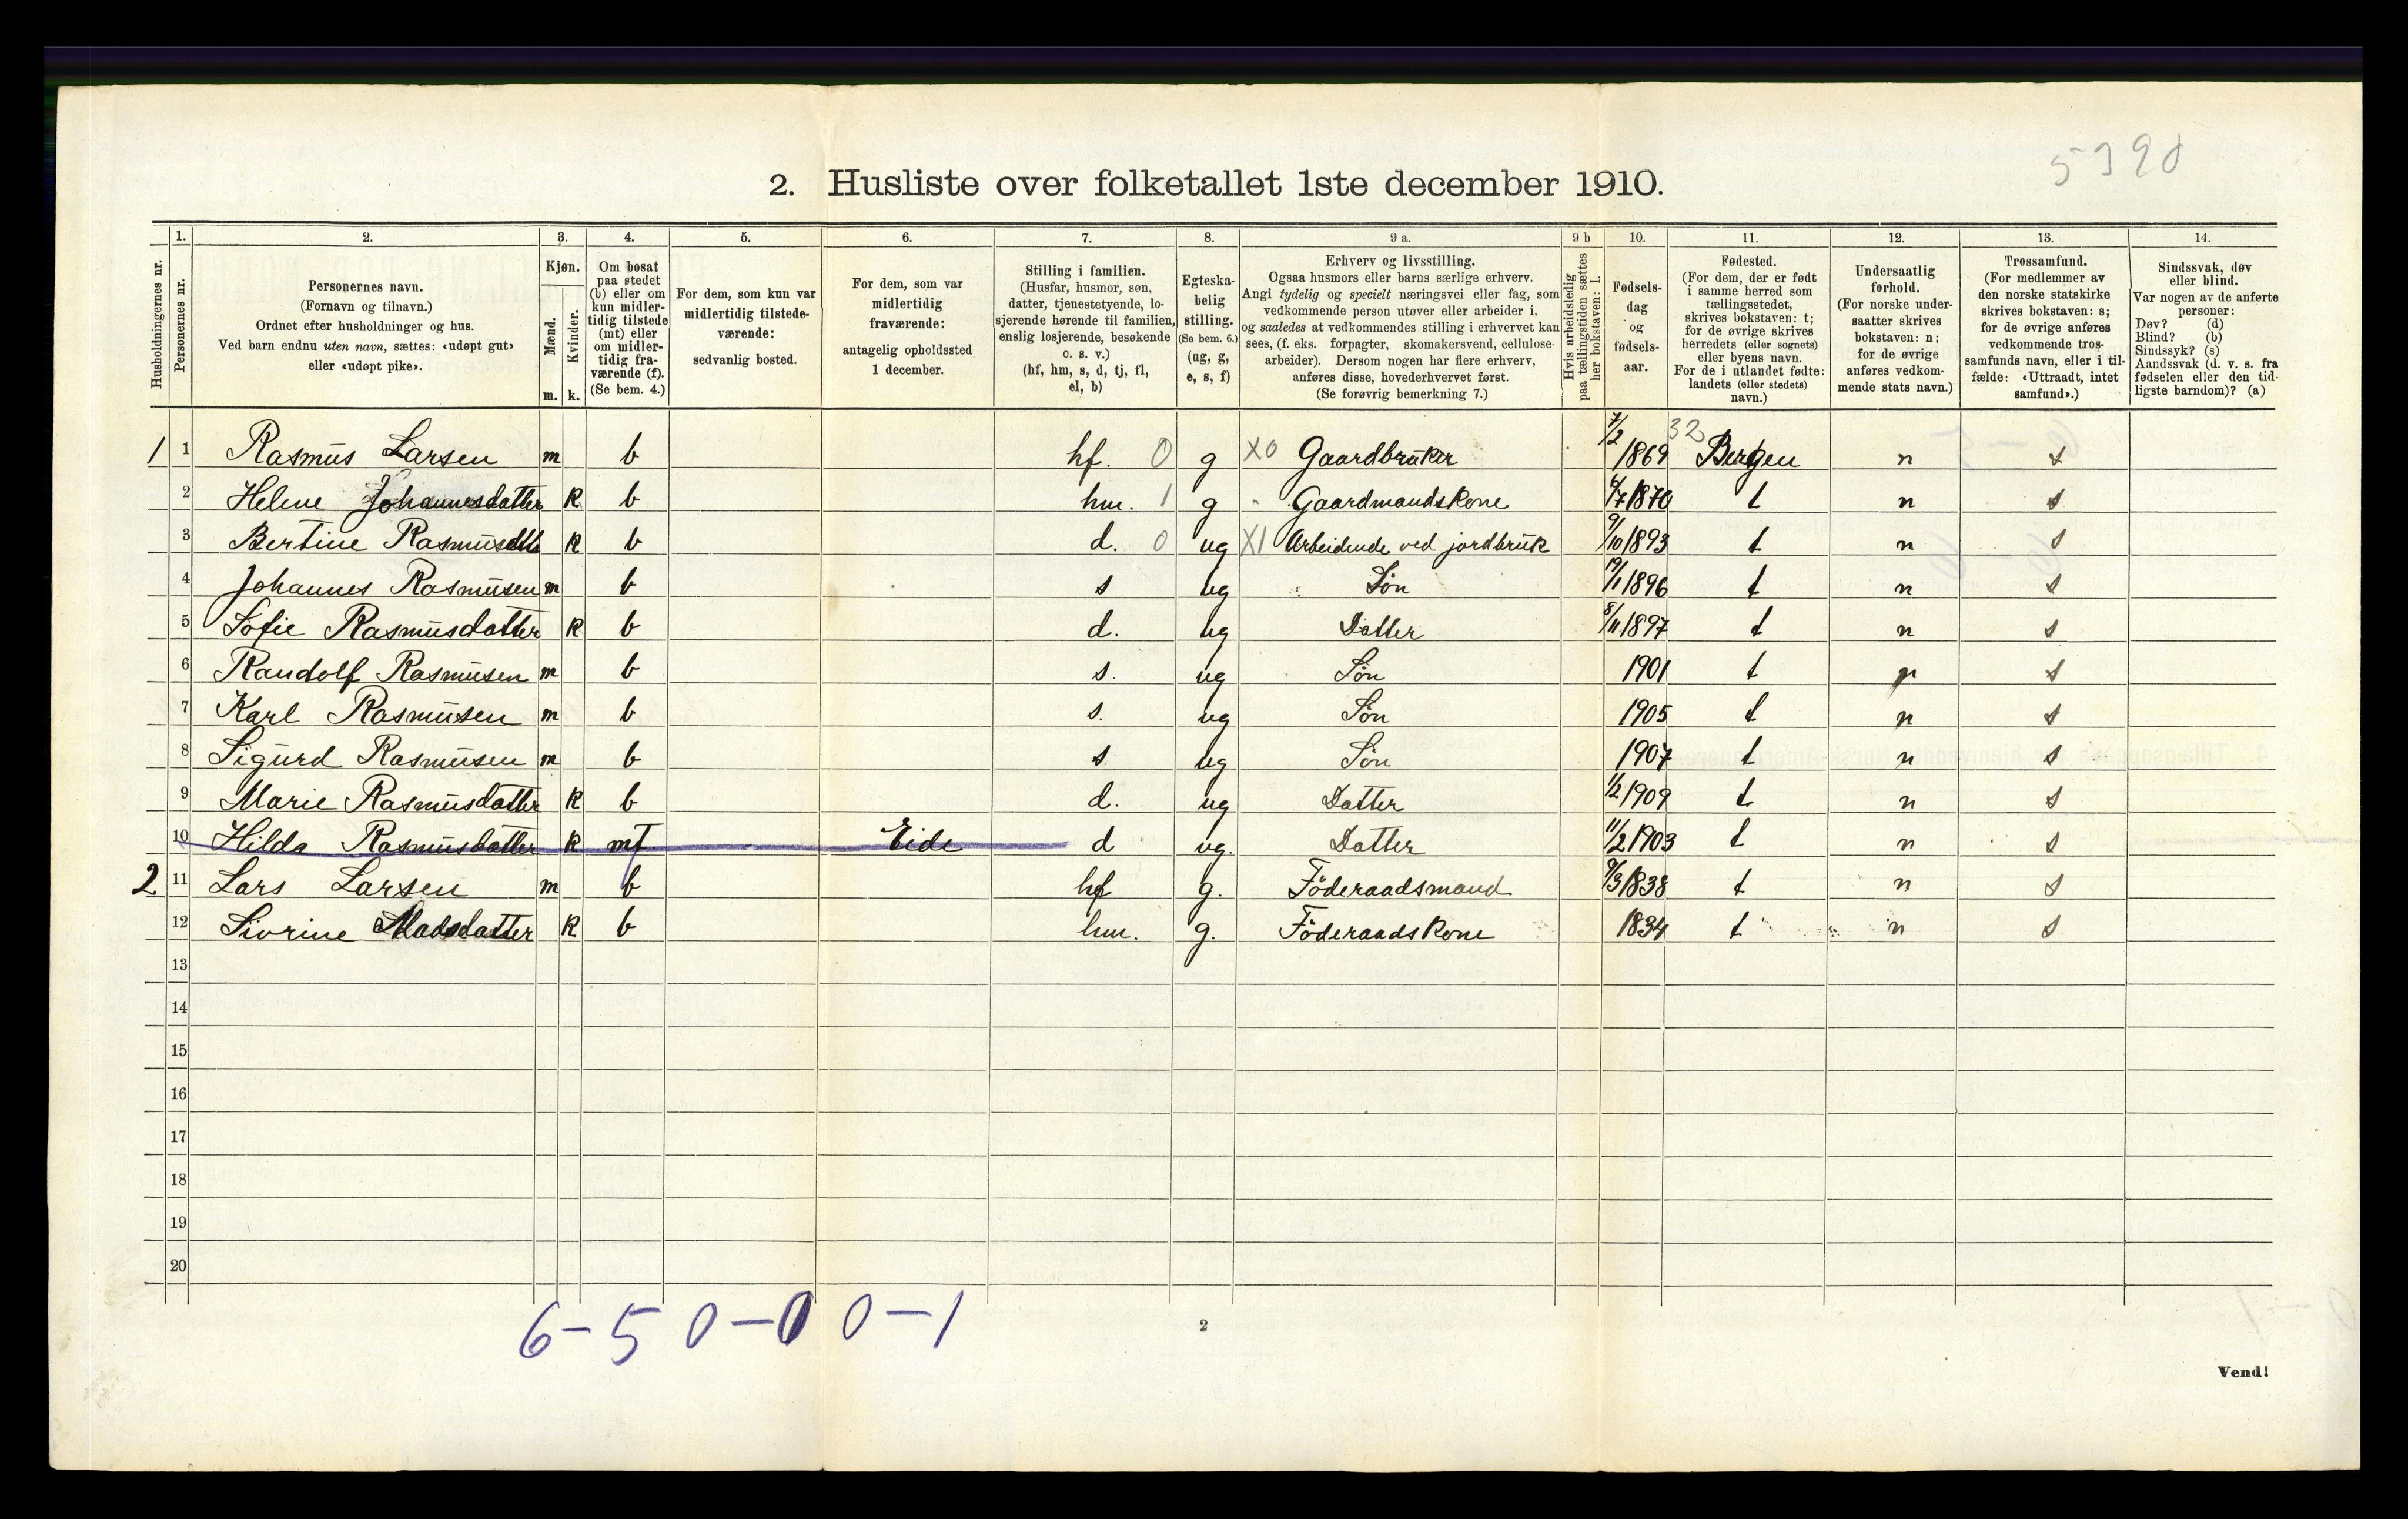 5390
2. Husliste over folketallet 1ste december 1910.
1. 2. 3. 4. 5. 6. 7. 8. 9 a. 9 b 10. 11. 12. 13. 14.
Husholdningernes nr.
Personernes nr.
Personernes navn.
(Fornavn og tilnavn.)
Ordnet efter husholdninger og hus.
Ved barn endnu uten navn, sættes: «udøpt gut»
eller «udøpt pike».
Kjøn.
Mænd.
Kvinder.
m. k.
Om bosat
paa stedet
(b) eller om
kun midler-
tidig tilstede
(mt) eller
om midler-
tidig fra-
værende (f).
(Se bem. 4.)
For dem, som kun var
midlertidig tilstede-
værende:
sedvanlig bosted.
For dem, som var
midlertidig
fraværende:
antagelig opholdssted
1 december.
Stilling i familien.
(Husfar, husmor, søn,
datter, tjenestetyende, lo-
sjerende hørende til familien,
enslig losjerende, besøkende
o. s. v.)
(hf, hm, s, d, tj, fl,
el, b)
Egteska-
belig
stilling.
(Se bem. 6.)
(ug, g,
e, s, f)
Erhverv og livsstilling.
Ogsaa husmors eller barns særlige erhverv.
Angi tydelig og specielt næringsvei eller fag, som
vedkommende person utøver eller arbeider i,
og saaledes at vedkommendes stilling i erhvervet kan
sees, (f. eks. forpagter, skomakersvend, cellulose-
arbeider). Dersom nogen har flere erhverv,
anføres disse, hovederhvervet først.
(Se forøvrig bemerkning 7.)
Hvis arbeidsledig
paa tællingstiden sættes
her bokstaven: l.
Fødsels-
dag
og
fødsels-
aar.
Fødested.
(For dem, der er født
i samme herred som
tællingsstedet,
skrives bokstaven: t;
for de øvrige skrives
herredets (eller sognets)
eller byens navn.
For de i utlandet fødte:
landets (eller stedets)
navn.)
Undersaatlig
forhold.
(For norske under-
saatter skrives
bokstaven: n;
for de øvrige
anføres vedkom-
mende stats navn.)
Trossamfund.
(For medlemmer av
den norske statskirke
skrives bokstaven: s;
for de øvrige anføres
vedkommende tros-
samfunds navn, eller i til-
fælde: «Uttraadt, intet
samfund».)
Sindssvak, døv
eller blind.
Var nogen av de anførte
personer:
Døv? (d)
Blind? (b)
Sindssyk? (s)
Aandssvak (d. v. s. fra
fødselen eller den tid-
ligste barndom)? (a)
1 1 Rasmus Larsen m b hf. 0 g X0 Gaardbruker 7/2 1869 32 Bergen n s
2 Helene Johannesdatter k b hm. 1 g " Gaardmandskone 6/7 1870 t n s
3 Bertine Rasmusdtt k b d. 0 ug X1 Arbeidende ved jordbruk 9/10 1893 t n s
4 Johannes Rasmusen m b s ug Søn 19/1 1896 t n s
5 Sofie Rasmusdatter k b d. ug Datter 8/11 1897 t n s
6 Randolf Rasmusen m b s. ug Søn 1901 t n s
7 Karl Rasmusen m b s. ug Søn 1905 t n s
8 Sigurd Rasmusen m b s ug Søn 1907 t n s
9 Marie Rasmusdatter k b d. ug Datter 1/2 1909 t n s
10 Hilda Rasmusdatter k mf Eide d ug. Datter 11/2 1903 t n s
2 11 Lars Larsen m b hf g. Föderaadsmand 9/3 1838 t n s
12 Sivrine Madsdatter k b hm. g. Föderaadskone 1834 t n s
13
14
15
16
17
18
19
20
6-5 0-0 0-1
2
Vend!